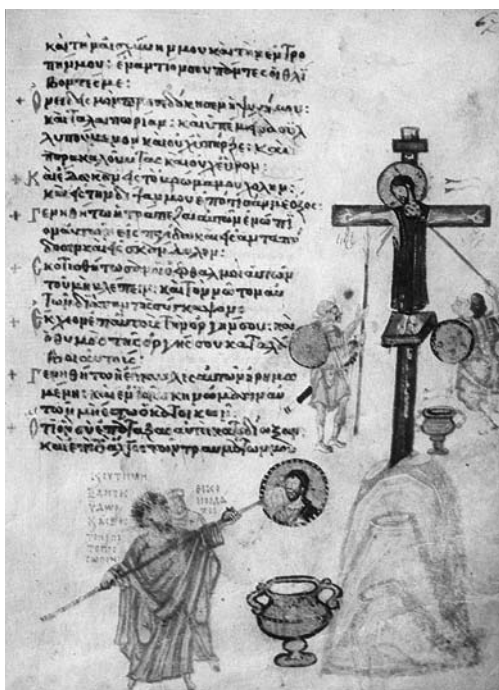 καὶ τὴν αἰσχύνην μου καὶ τὴν ἐντρο
πήν μου: ἐναντίον σου πάντες οἱ θλί
βοντές με:
+ Ὀνειδισμὸν προσεδόκησεν ἡ ψυχή μου:
καὶ ταλαιπωρίαν: καὶ ὑπέμεινα συλ
λυπούμενον καὶ οὐχ ὑπῆρξε: καὶ
παρακαλοῦντας καὶ οὐχ εὗρον:
+ Καὶ ἔδωκαν εἰς τὸ βρῶμα μου χολήν:
καὶ εἰς τὴν δίψαν μου ἐπότισάν με ὄξος:
+ Γενηθήτω ἡ τράπεζα αὐτῶν ἐνώπι
ον αὐτῶν εἰς παγίδα καὶ εἰς ἀνταπό
δοσιν καὶ εἰς σκάνδαλον:
+ Σκοτισθήτωσαν οἱ ὀφθαλμοὶ αὐτῶν
τοῦ μὴ βλέπειν: καὶ τὸν νῶτον αὐ
τῶν διαπαντὸς σύγκαμψον:
+ Ἔκχεον ἐπ' αὐτοὺς τὴν ὀργήν σου: καὶ
ὁ θυμὸς τῆς ὀργῆς σου καταλά
βοι αὐτούς:
+ Γενηθήτω ἡ ἔπαυλις αὐτῶν ἠρημω
μένη: καὶ ἐν τοῖς σκηνώμασιν αὐ
τῶν μὴ ἔστω ὁ κατοικῶν:
+ Ὅτι ὃν σὺ ἐπάταξας αὐτοὶ κατεδίωξαν:
καὶ ἐπὶ τὸ ἄλγος τῶν τραυμάτων μου